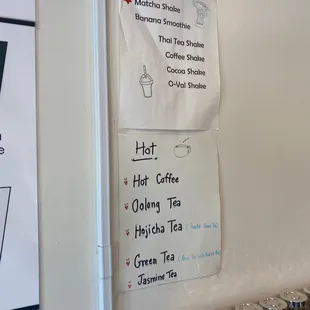 Matcha Shake
Banana Smoothie
Thai Tea Shake
Coffee Shake
Cocoa Shake
O-Val Shake
Hot
Hot Coffee
Oolong Tea
Hojicha Tea
Green Tea
Jasmine Tea